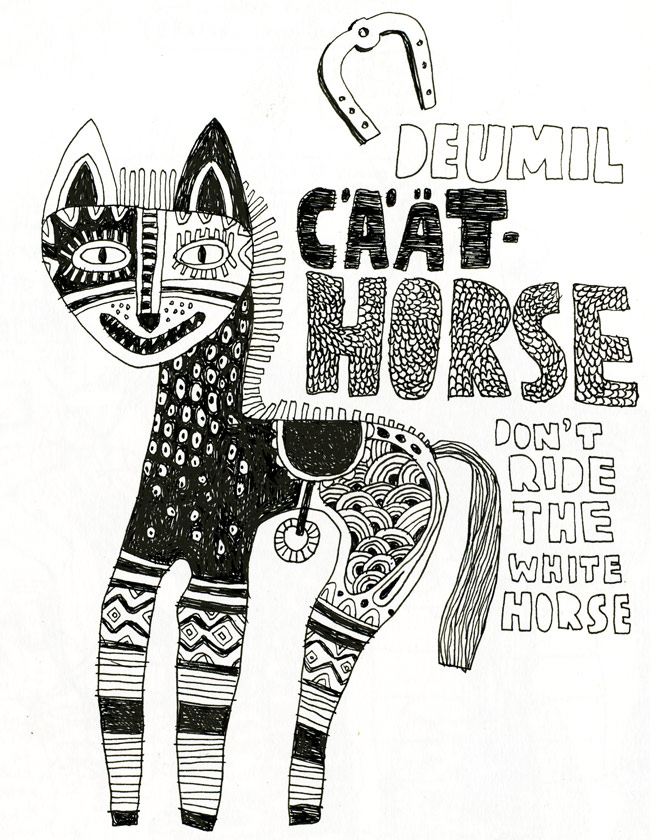 DEUMIL
CÄÄT-
HORSE
DON'T
RIDE
THE
WHITE
HORSE